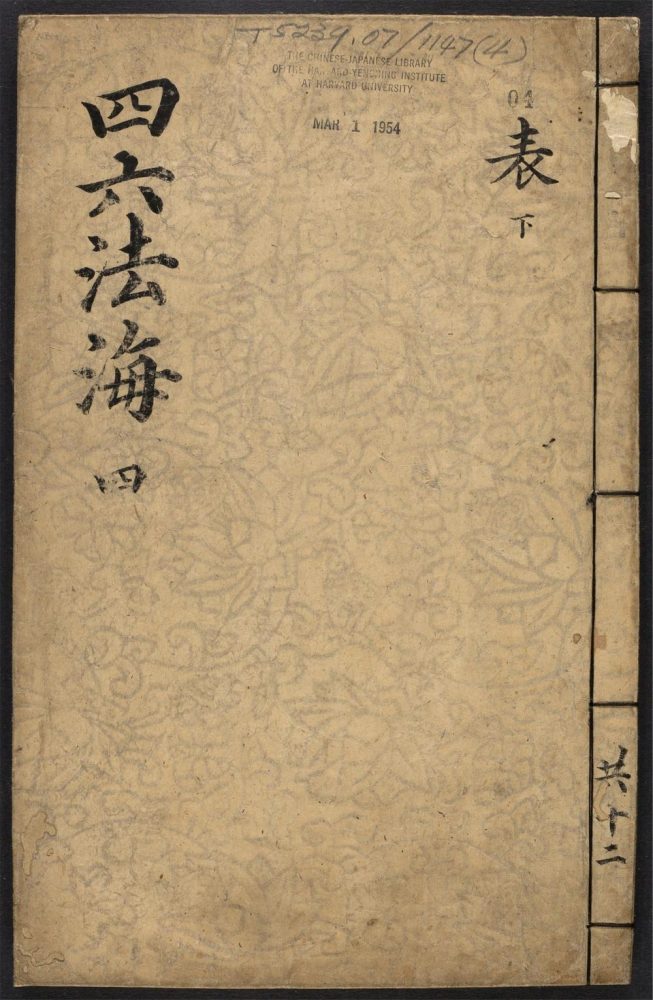 T5239.07/1147(4)
THE CHINESE-JAPANESE LIBRARY
OF THE HARVARD-YENCHING INSTITUTE
AT HARVARD UNIVERSITY
MAR 1 1954
04
表
下
四六法海 四
共十二